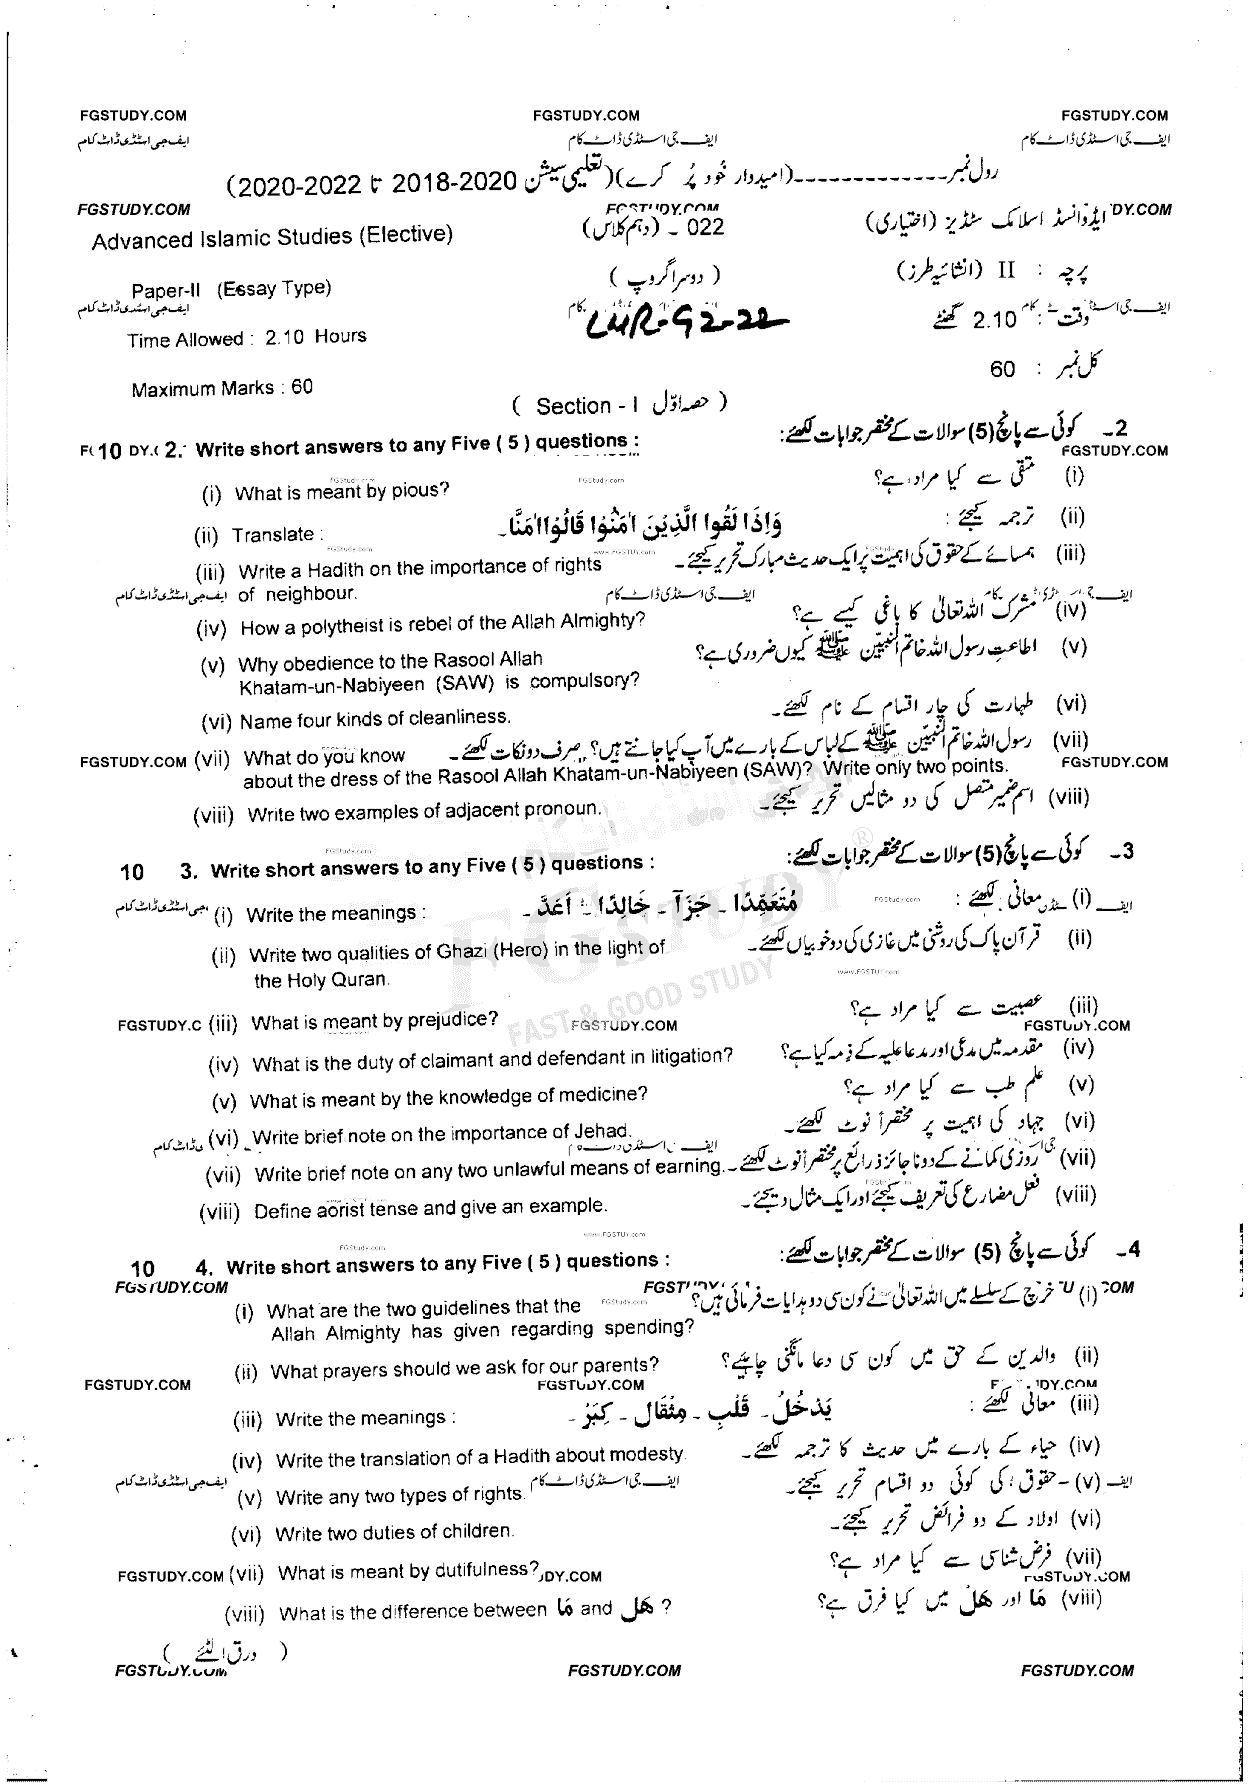 FGSTUDY.COM FGSTUDY.COM FGSTUDY.COM
ایف جی اسٹڈی ڈاٹ کام ایف جی اسٹڈی ڈاٹ کام ایف جی اسٹڈی ڈاٹ کام
رول نمبر-------------(امیدوار خود پُر کرے)(تعلیمی سیشن 2020-2018 تا 2022-2020)
FGSTUDY.COM
Advanced Islamic Studies (Elective) 022 - (دہم کلاس) ایڈوانسڈ اسلامک سٹڈیز (اختیاری)
Paper-II (Essay Type) (دوسرا گروپ) پرچہ : II (انشائیہ طرز)
LHR-G2-22
Time Allowed : 2.10 Hours وقت : 2.10 گھنٹے
Maximum Marks : 60 کل نمبر : 60
( Section - I حصہ اوّل )
10 2. Write short answers to any Five ( 5 ) questions : 2- کوئی سے پانچ (5) سوالات کے مختصر جوابات لکھئے:
FGSTUDY.COM
(i) What is meant by pious? (i) متقی سے کیا مراد ہے؟
(ii) Translate : وَاِذَا لَقُوا الَّذِيْنَ اٰمَنُوْا قَالُوْا اٰمَنَّا۔ (ii) ترجمہ کیجئے :
(iii) Write a Hadith on the importance of rights (iii) ہمسائے کے حقوق کی اہمیت پر ایک حدیث مبارک تحریر کیجئے۔
of neighbour.
(iv) How a polytheist is rebel of the Allah Almighty? (iv) مشرک اللہ تعالیٰ کا باغی کیسے ہے؟
(v) Why obedience to the Rasool Allah (v) اطاعتِ رسول اللہ خاتم النبیین ﷺ کیوں ضروری ہے؟
Khatam-un-Nabiyeen (SAW) is compulsory?
(vi) Name four kinds of cleanliness. (vi) طہارت کی چار اقسام کے نام لکھئے۔
FGSTUDY.COM (vii) What do you know (vii) رسول اللہ خاتم النبیین ﷺ کے لباس کے بارے میں آپ کیا جانتے ہیں؟ صرف دو نکات لکھئے۔
about the dress of the Rasool Allah Khatam-un-Nabiyeen (SAW)? Write only two points. FGSTUDY.COM
(viii) Write two examples of adjacent pronoun. (viii) اسم ضمیر متصل کی دو مثالیں تحریر کیجئے۔
10 3. Write short answers to any Five ( 5 ) questions : 3- کوئی سے پانچ (5) سوالات کے مختصر جوابات لکھئے:
(i) Write the meanings : مُتَعَمِّدًا ۔ جَزَآ ۔ خَالِدًا ۔ اَعَدَّ ۔ (i) معانی لکھئے :
(ii) Write two qualities of Ghazi (Hero) in the light of (ii) قرآن پاک کی روشنی میں غازی کی دو خوبیاں لکھئے۔
the Holy Quran.
(iii) What is meant by prejudice? FGSTUDY.COM (iii) عصبیت سے کیا مراد ہے؟
FGSTUDY
FAST & GOOD STUDY
(iv) What is the duty of claimant and defendant in litigation? (iv) مقدمہ میں مدعی اور مدعا علیہ کے ذمہ کیا ہے؟
(v) What is meant by the knowledge of medicine? (v) علم طب سے کیا مراد ہے؟
(vi) Write brief note on the importance of Jehad. (vi) جہاد کی اہمیت پر مختصراً نوٹ لکھئے۔
(vii) Write brief note on any two unlawful means of earning. (vii) روزی کمانے کے دو ناجائز ذرائع پر مختصراً نوٹ لکھئے۔
(viii) Define aorist tense and give an example. (viii) فعل مضارع کی تعریف کیجئے اور ایک مثال دیجئے۔
10 4. Write short answers to any Five ( 5 ) questions : 4- کوئی سے پانچ (5) سوالات کے مختصر جوابات لکھئے:
FGSTUDY.COM
(i) What are the two guidelines that the (i) خرچ کے سلسلے میں اللہ تعالیٰ نے کون سی دو ہدایات فرمائی ہیں؟
Allah Almighty has given regarding spending?
(ii) What prayers should we ask for our parents? (ii) والدین کے حق میں کون سی دعا مانگنی چاہیئے؟
FGSTUDY.COM FGSTUDY.COM
(iii) Write the meanings : يَدْخُلُ ۔ قَلْبِ ۔ مِثْقَال ۔ كِبَرٌ ۔ (iii) معانی لکھئے :
(iv) Write the translation of a Hadith about modesty. (iv) حیاء کے بارے میں حدیث کا ترجمہ لکھئے۔
(v) Write any two types of rights. ایف جی اسٹڈی ڈاٹ کام (v) حقوق کی کوئی دو اقسام تحریر کیجئے۔
(vi) Write two duties of children. (vi) اولاد کے دو فرائض تحریر کیجئے۔
FGSTUDY.COM (vii) What is meant by dutifulness? (vii) فرض شناسی سے کیا مراد ہے؟
(viii) What is the difference between مَا and هَل ? (viii) مَا اور هَلْ میں کیا فرق ہے؟
( ورق الٹئے )
FGSTUDY.COM FGSTUDY.COM FGSTUDY.COM